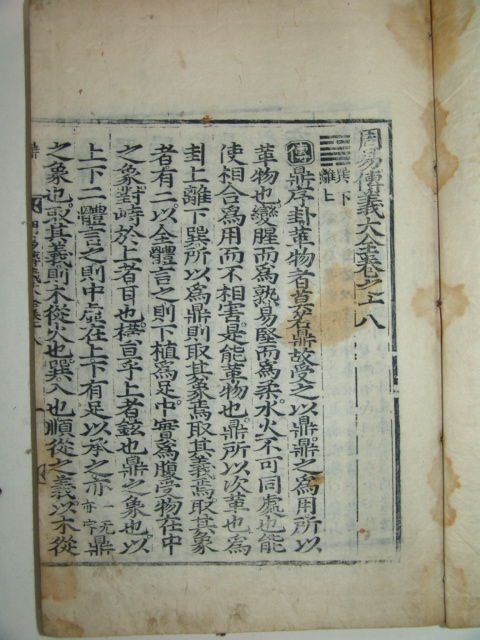 周易傳義大全卷之十八
巽下
離上
傳鼎序卦革物者莫若鼎故受之以鼎鼎之爲用所以
革物也變腥而爲熟易堅而爲柔水火不可同處也能
使相合爲用而不相害是能革物也鼎所以次革也爲
卦上離下巽所以爲鼎則取其象焉取其義焉取其象
者有二以全體言之則下植爲足中實爲腹受物在中
之象對峙於上者耳也橫亘乎上者鉉也鼎之象也以
上下二體言之則中虛在上下有足以承之亦一无亦字鼎
之象也取其義則木從火也巽入也順從之義以木從